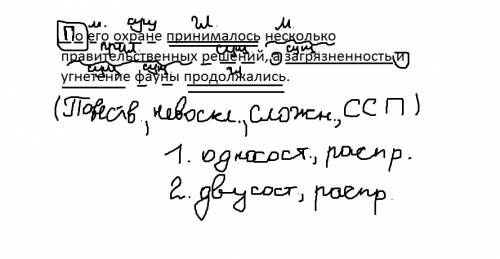 м. сущ гл. м.
По его охране принималось несколько
прил сущ сущ
правительственных решений, а загрязненность и
сущ сущ гл
угнетение фауны продолжались.
(Повеств., невоскл., сложн., ССП)
1. односост., распр.
2. двусост, распр.